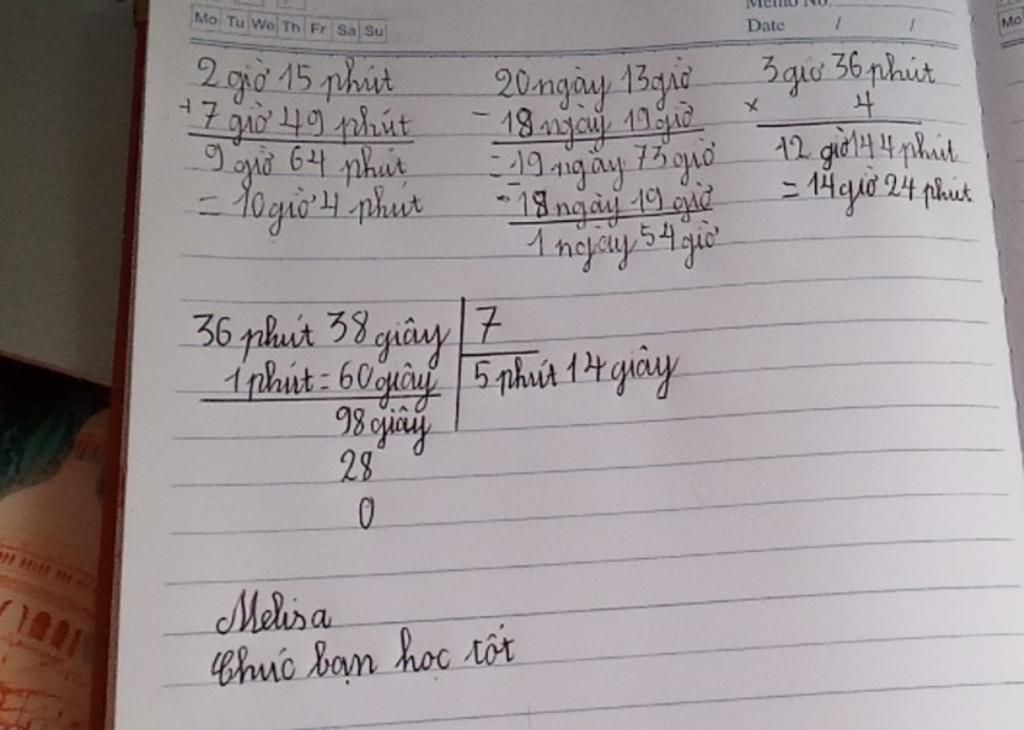 Mo Tu We Th Fr Sa Su
Memo No.
Date / /
Mo
2 giờ 15 phút
+ 7 giờ 49 phút
9 giờ 64 phút
= 10 giờ 4 phút
20 ngày 13 giờ
- 18 ngày 19 giờ
= 19 ngày 73 giờ
- 18 ngày 19 giờ
1 ngày 54 giờ
3 giờ 36 phút
x 4
12 giờ 144 phút
= 14 giờ 24 phút
36 phút 38 giây 7
1 phút = 60 giây 5 phút 14 giây
98 giây
28
0
Melisa
Chúc bạn học tốt